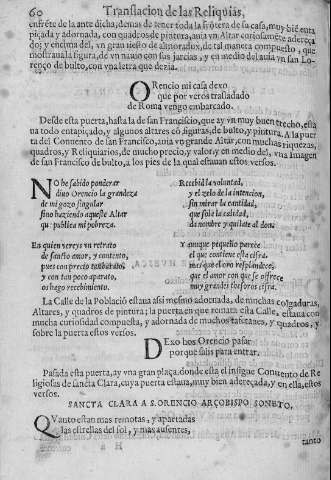 60 Translacion de las Reliquias,
enfrẽte de la ante dicha, demas de tener toda la frõtera de su casa, muy biẽ enta
piçada y adornada, con quadros de pintura, auia vn Altar curiosamẽte adereça
do; y encima del, vn gran tiesto de almoradux, de tal manera compuesto, que
mostraua la figura, de vn nauio con sus jarcias, y en medio del auia vn san Lo-
renço de bulto, con vna letra que dezia.
ORencio mi casa dexo
que por veros trasladado
de Roma vengo embarcado.
Desde esta puerta, hasta la de san Francisco, que ay vn muy buen trecho, esta
ua todo entapiçado, y algunos altares cõ figuras, de bulto, y pintura. A la puer
ta del Conuento de san Francisco, auia vn grande Altar, con muchas riquezas,
quadros, y Reliquiarios, de mucho precio, y valor, y en medio del, vna Imagen
de san Francisco de bulto, a los pies de la qual estauan estos versos.
NO he sabido ponderar
diuo Orencio la grandeza
de mi gozo singular
sino haziendo aqueste Altar
qu publica mi pobreza.
En quien vereys vn retrato
de sancto amor, y contento,
pues con precio tan barato,
y con tan poco aparato,
os hago recebimiento.
Recebid la voluntad,
y el zelo de la intencion,
sin mirar la cantidad,
que sola la calidad,
da nombre y quilate al don.
Y aunque pequeño parece
el que contiene esta cifra,
mercè que el oro resplandece,
que el amor con que se ofrece
muy grandes thesoros cifra.
La Calle de la Població estaua assi mesmo adornada, de muchas colgaduras,
Altares, y quadros de pintura; la puerta en que remata esta Calle, estaua con
mucha curiosidad compuesta, y adornada de muchos tafetanes, y quadros, y
sobre la puerta estos versos.
DExo hos Orencio pasar
porque salis para entrar.
Pasada esta puerta, ay vna gran plaça, donde està el insigne Conuento de Re
ligiosas de sancta Clara, cuya puerta estaua, muy bien adereçada, y en ella, estos
versos.
SANCTA CLARA A S. ORENCIO ARÇOBISPO SONETO,
QVanto estan mas remotas, y apartadas
las estrellas del sol, y mas ausentes,
tanto